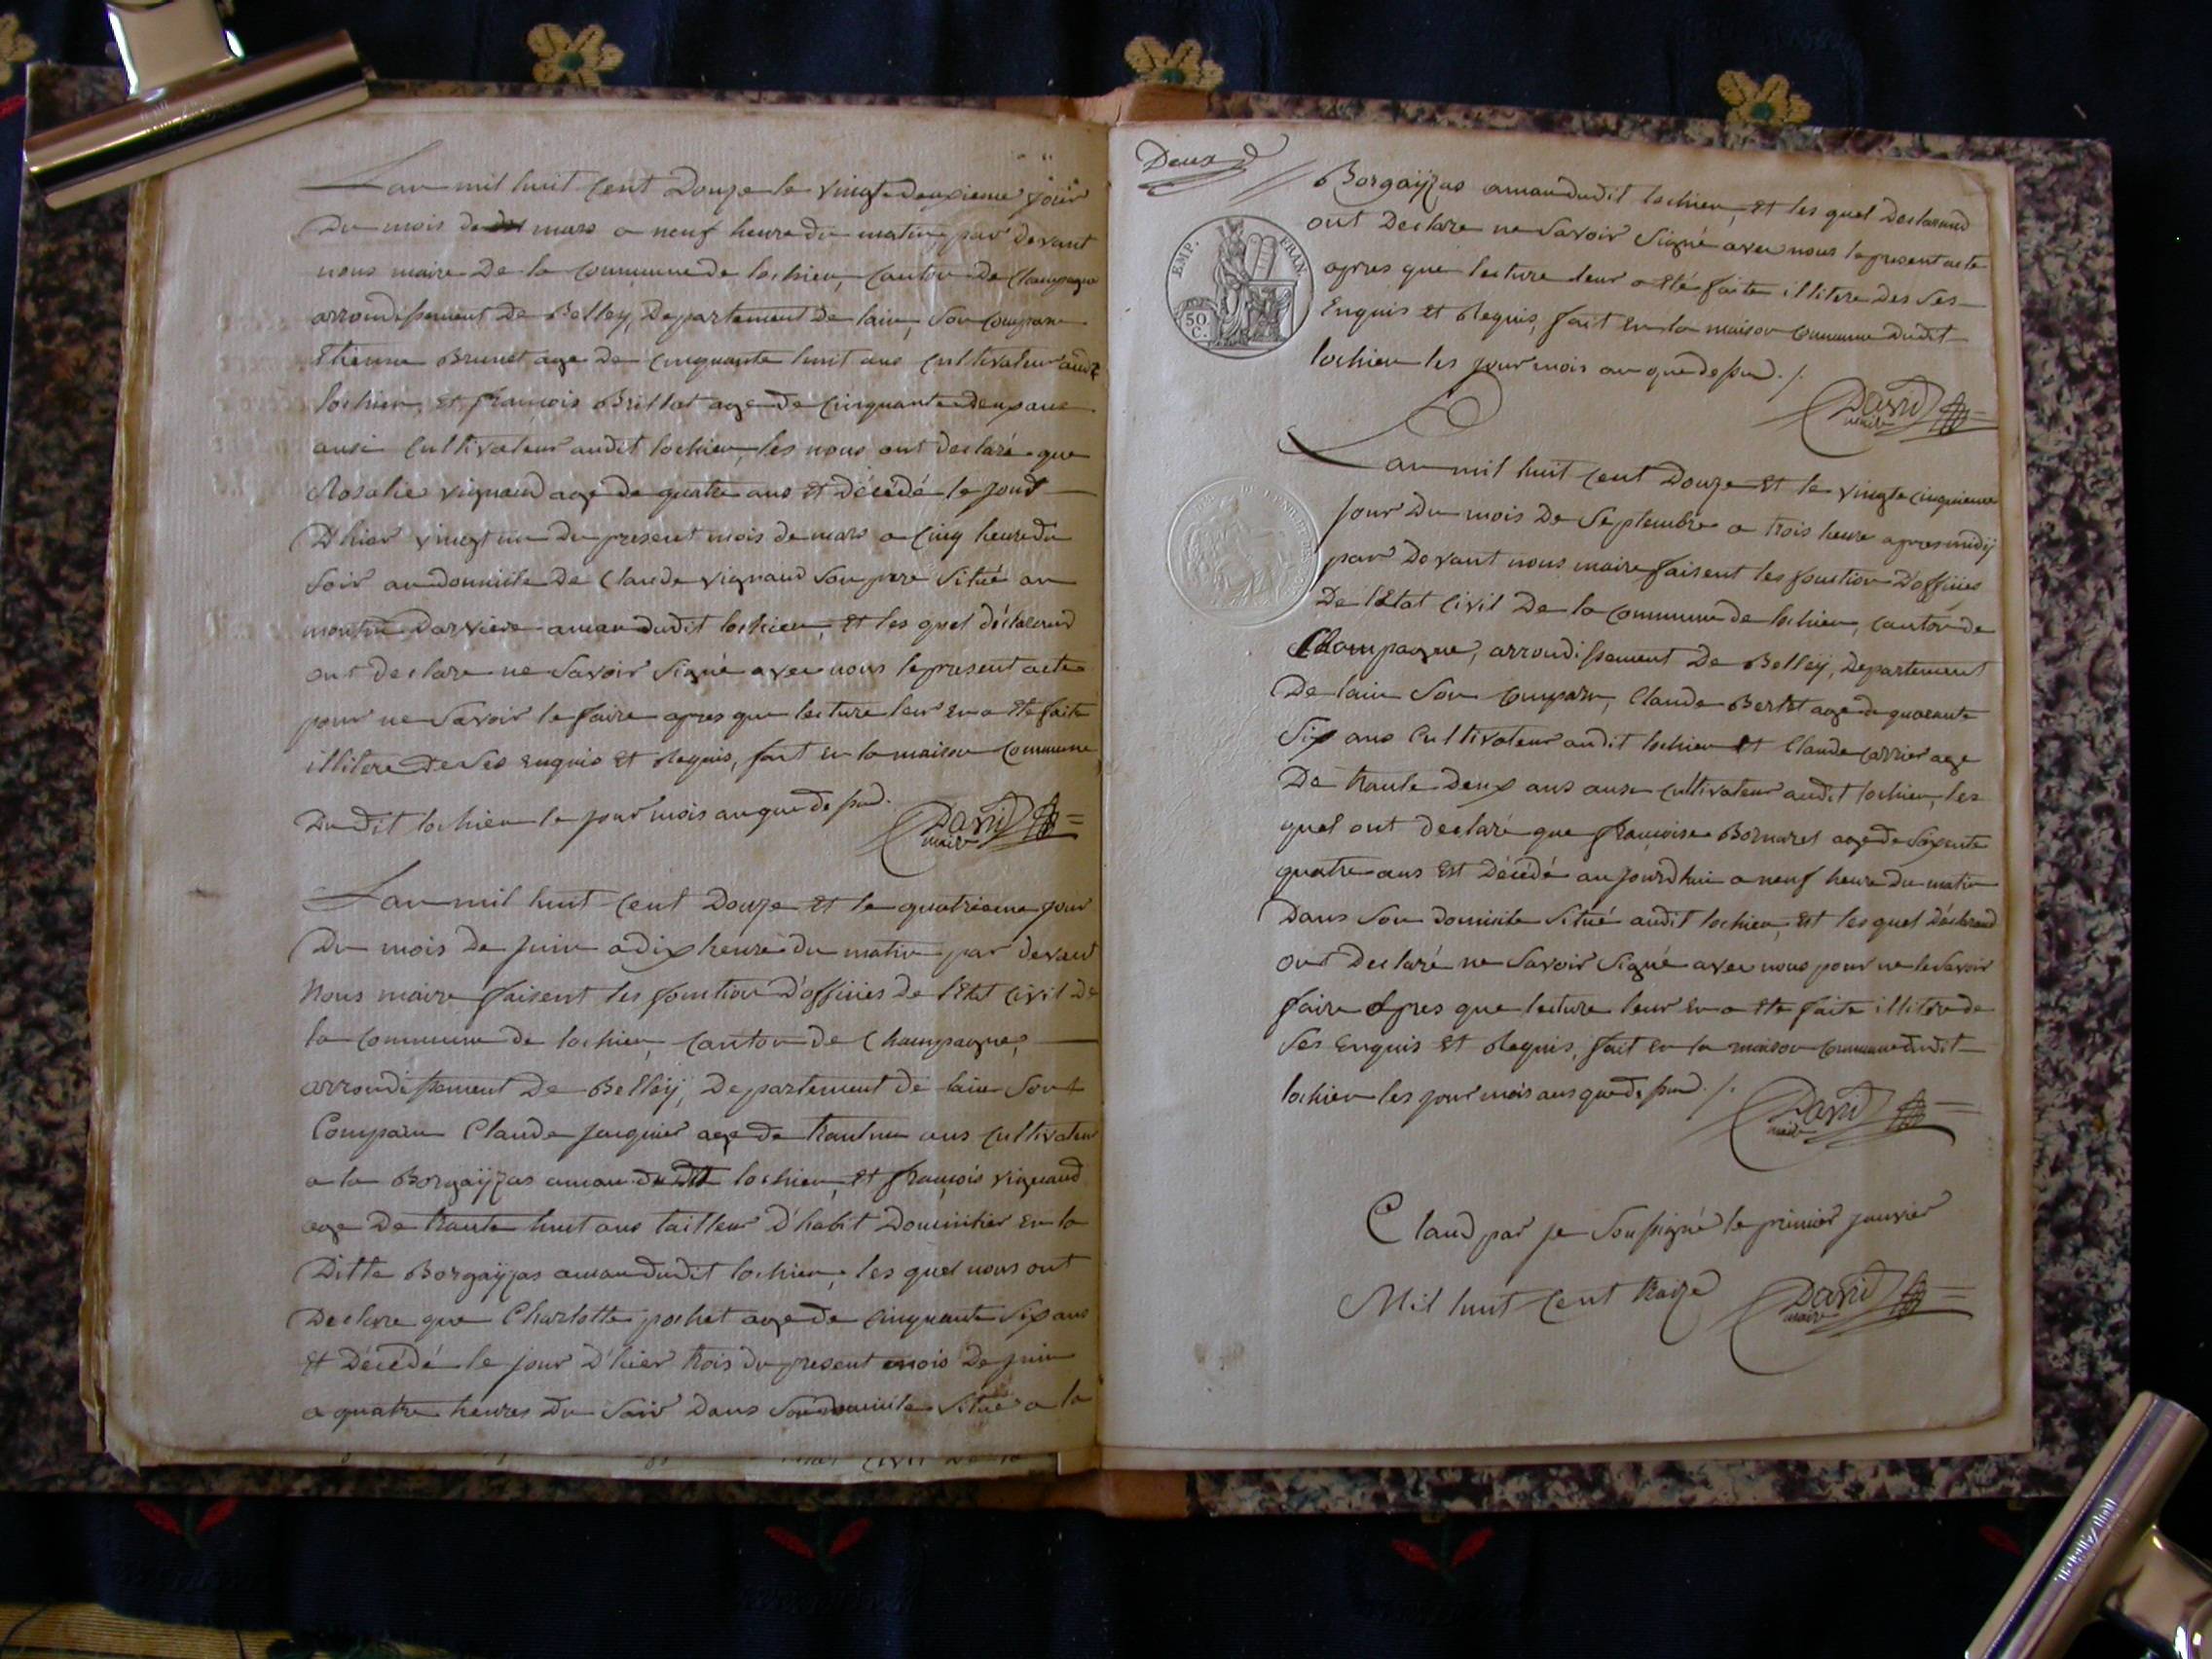 Lan mil huit Cent Douze le vingt deuxieme jour
Du mois de mars a neuf heure du matin, par devant
nous maire De la Commune de lochieu, Canton De Champagne
arrondissement De Belley, Departement De lain, Son Comparu
Etienne Brunet age De Cinquante huit ans Cultivateur audt
lochieu, Et françois Brillat age de Cinquante deux ans
ausi Cultivateur audit lochieu, les nous ont declaré que
Rosalie vignaud age de quatre ans Et Décédé le jour
D'hier vingt un du present mois de mars a Cinq heure du
Soir au domicile De Claude vignaud Son pere Situé au
moulin Darviere aman dudit lochieu, Et les quel déclarand
ont declare ne Savoir Signé avec nous le present acte
pour ne Savoir le faire apres que lecture leur En a Ete faite
illitere De Ses Enquis Et Requis, fait En la maison Commune
Du dit lochieu le jour mois an que de sud.
David
maire
Lan mil huit Cent Douze Et le quatrieme jour
Du mois De juin a dix heure du matin par devant
Nous maire faisent les fonction D'officies De l'Etat Civil De
la Commune de lochieu, Canton De Champagne,
arrondissement De Belleÿ, Departement De lain Sont
Comparu Claude jacquier age De trantun ans Cultivateur
a la Borgaÿzas aman dudit lochieu, Et françois vignaud
age De trante huit ans tailleur D'habit Domicilier En la
Ditte Borgaÿzas aman dudit lochieu, les quel nous ont
Declare que Charlotte pochet age De Cinquante Six ans
Et Décédé le jour D'hier trois du present mois De juin
a quatre heures Du Soir Dans Son domicile Situé a la
Deux
EMP. FRAN.
50
C.
Borgaÿzas aman dudit lochieu, Et les quel Declarand
ont Declare ne Savoir Signé avec nous le present acte
apres que lecture leur a Eté faite illitere Des Ses
Enquis Et Requis, fait En la maison Commune Dudit
lochieu les jour mois an que de sud. /.
David
maire
Lan mil huit Cent Douze Et le vingt Cinquieme
jour Du mois De Septembre a trois heure apres midÿ
par Devant nous maire faisent les fonction D'officies
De l'Etat Civil De la Commune de lochieu, Canton de
Champagne, arrondissement De Belleÿ, Departement
De lain Son Comparu, Claude Bertet age de quarante
Six ans Cultivateur audit lochieu Et Claude Carrier age
De trante Deux ans ausi Cultivateur audit lochieu, les
quel ont declaré que françoise Bornarel age de Soixente
quatre ans Est Décédé aujourdhui a neuf heure Du matin
Dans Son Domicile Situé audit lochieu, Et les quel Déclarand
ont Declaré ne Savoir Signé avec nous pour ne le Savoir
faire apres que lecture leur En a Ete faite illitere de
Ses Enquis Et Requis, fait En la maison Commune dudit
lochieu les jour mois ans que de sud. /.
David
maire
Claud par je Soussigné le premier janvier
Mil huit Cent traize David
maire